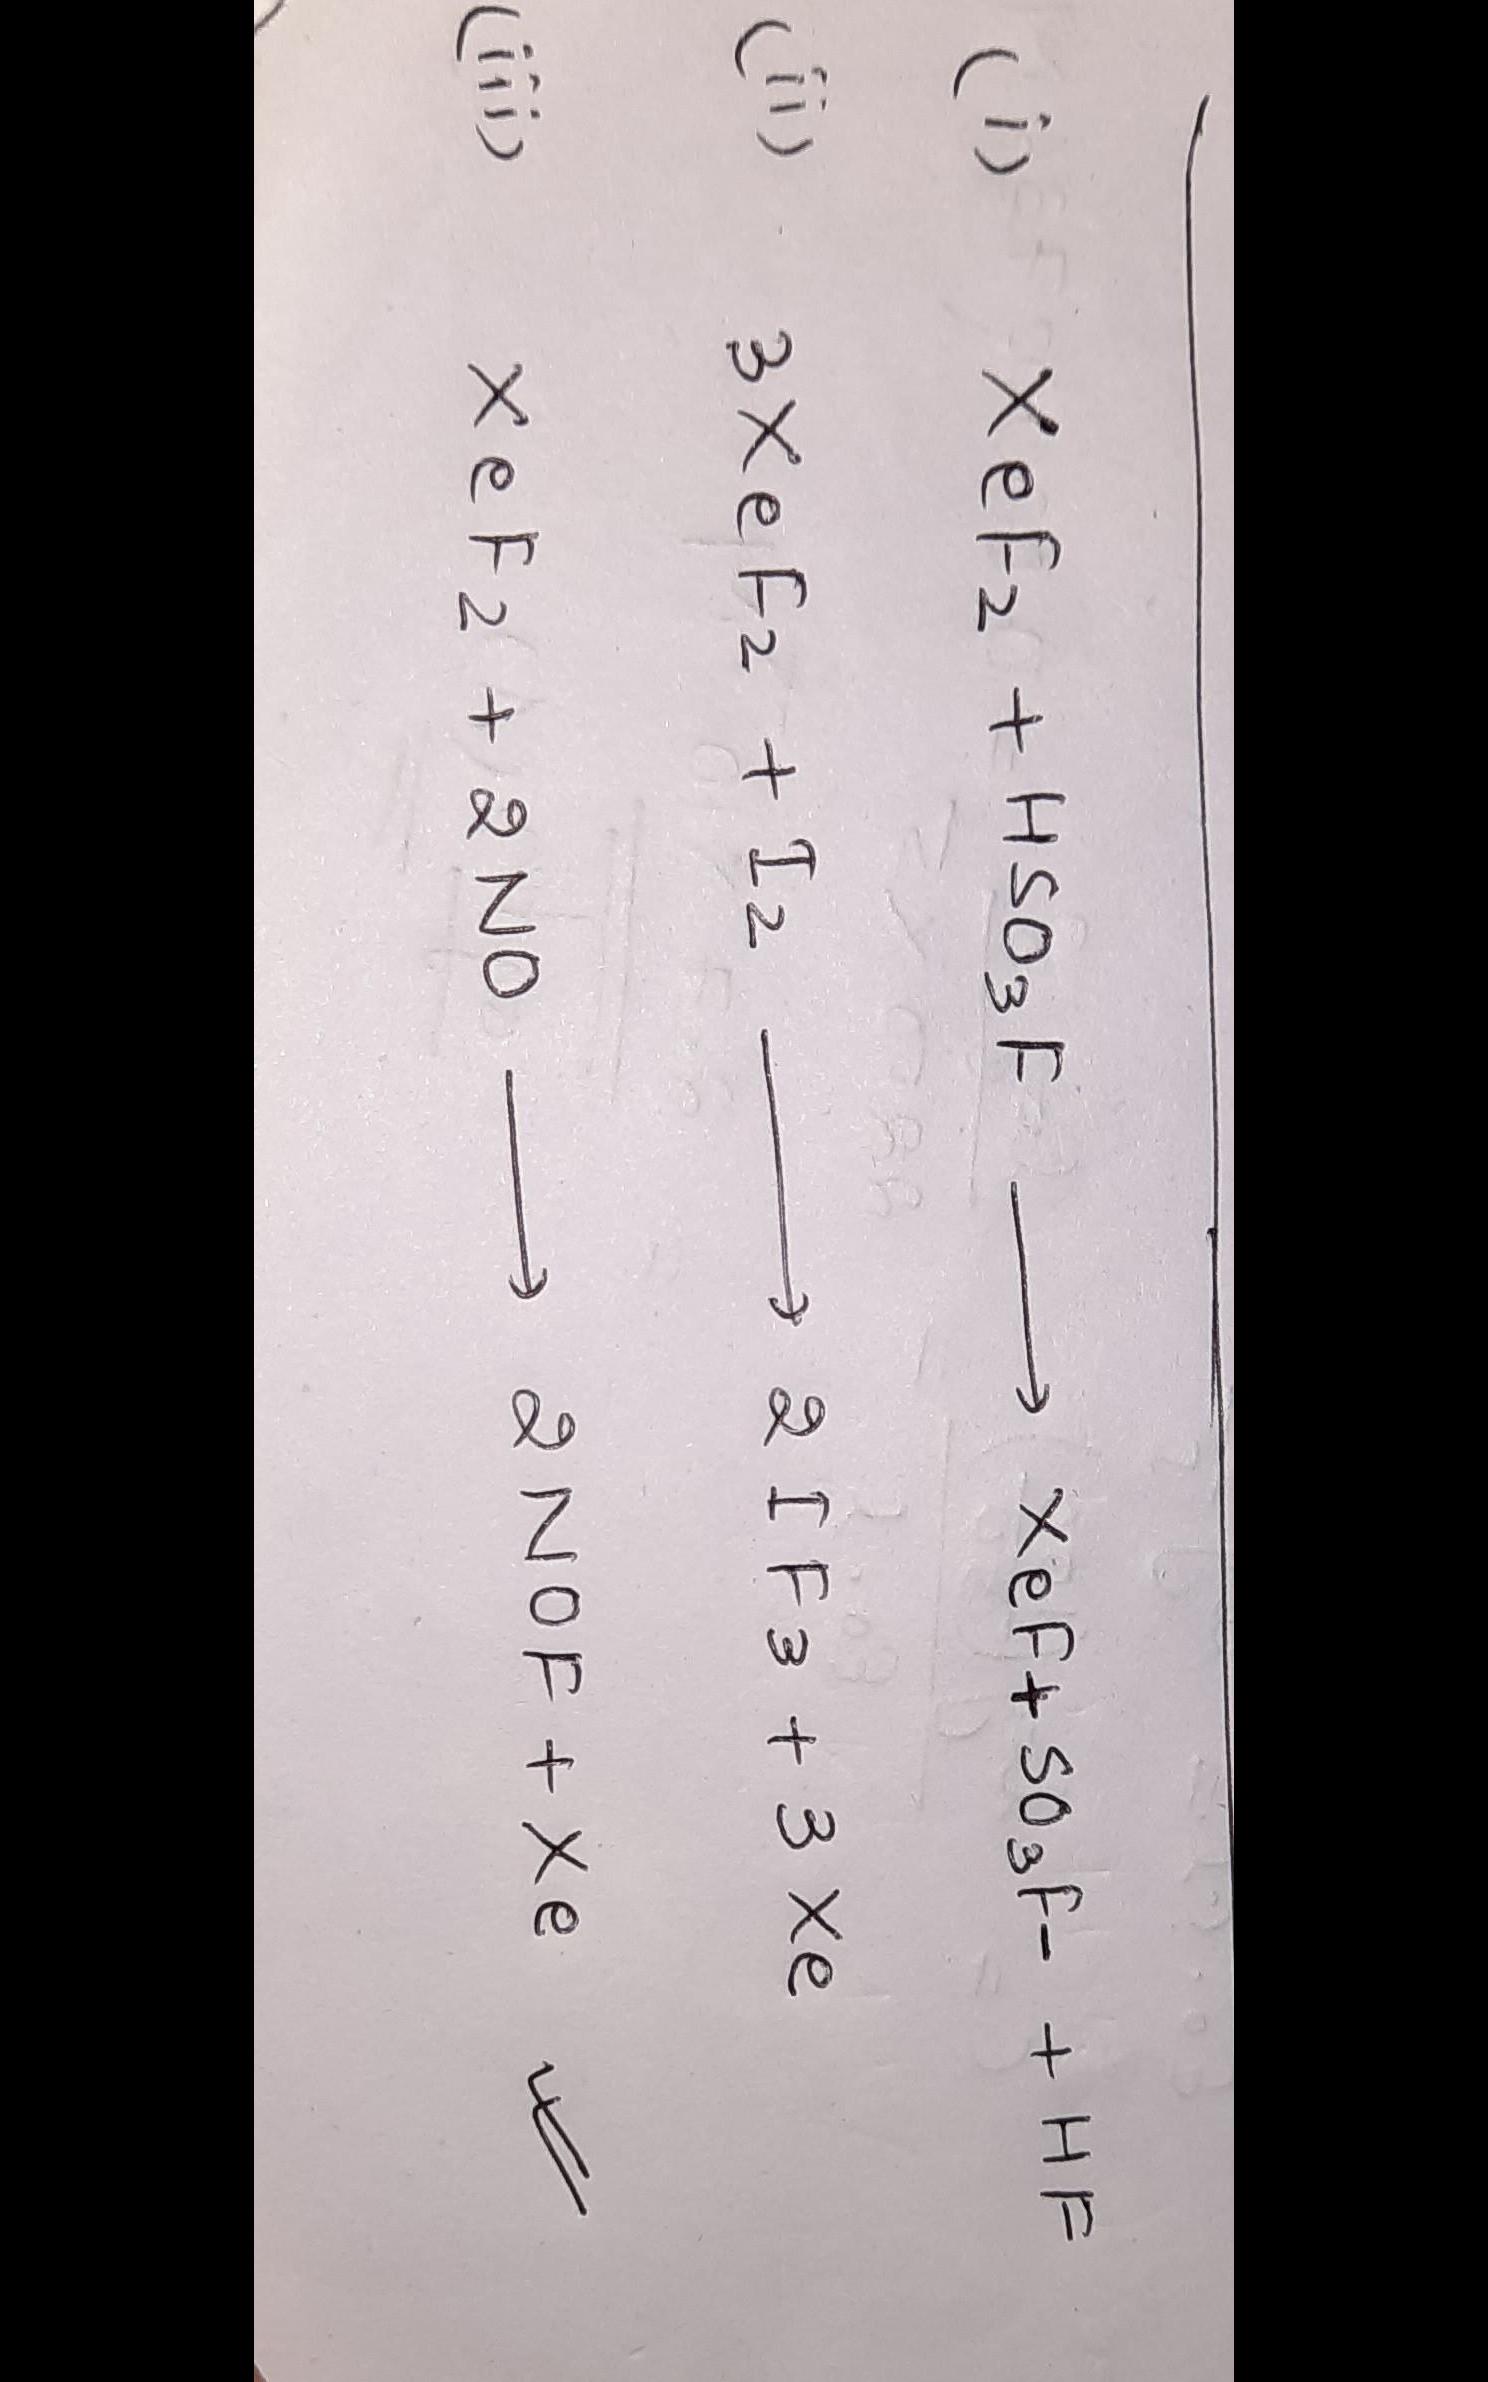 (i) XeF₂ + HSO₃F → XeF+SO₃F- + HF
(ii) 3XeF₂ + I₂ → 2IF₃ + 3Xe
(iii) XeF₂ + 2NO → 2NOF + Xe